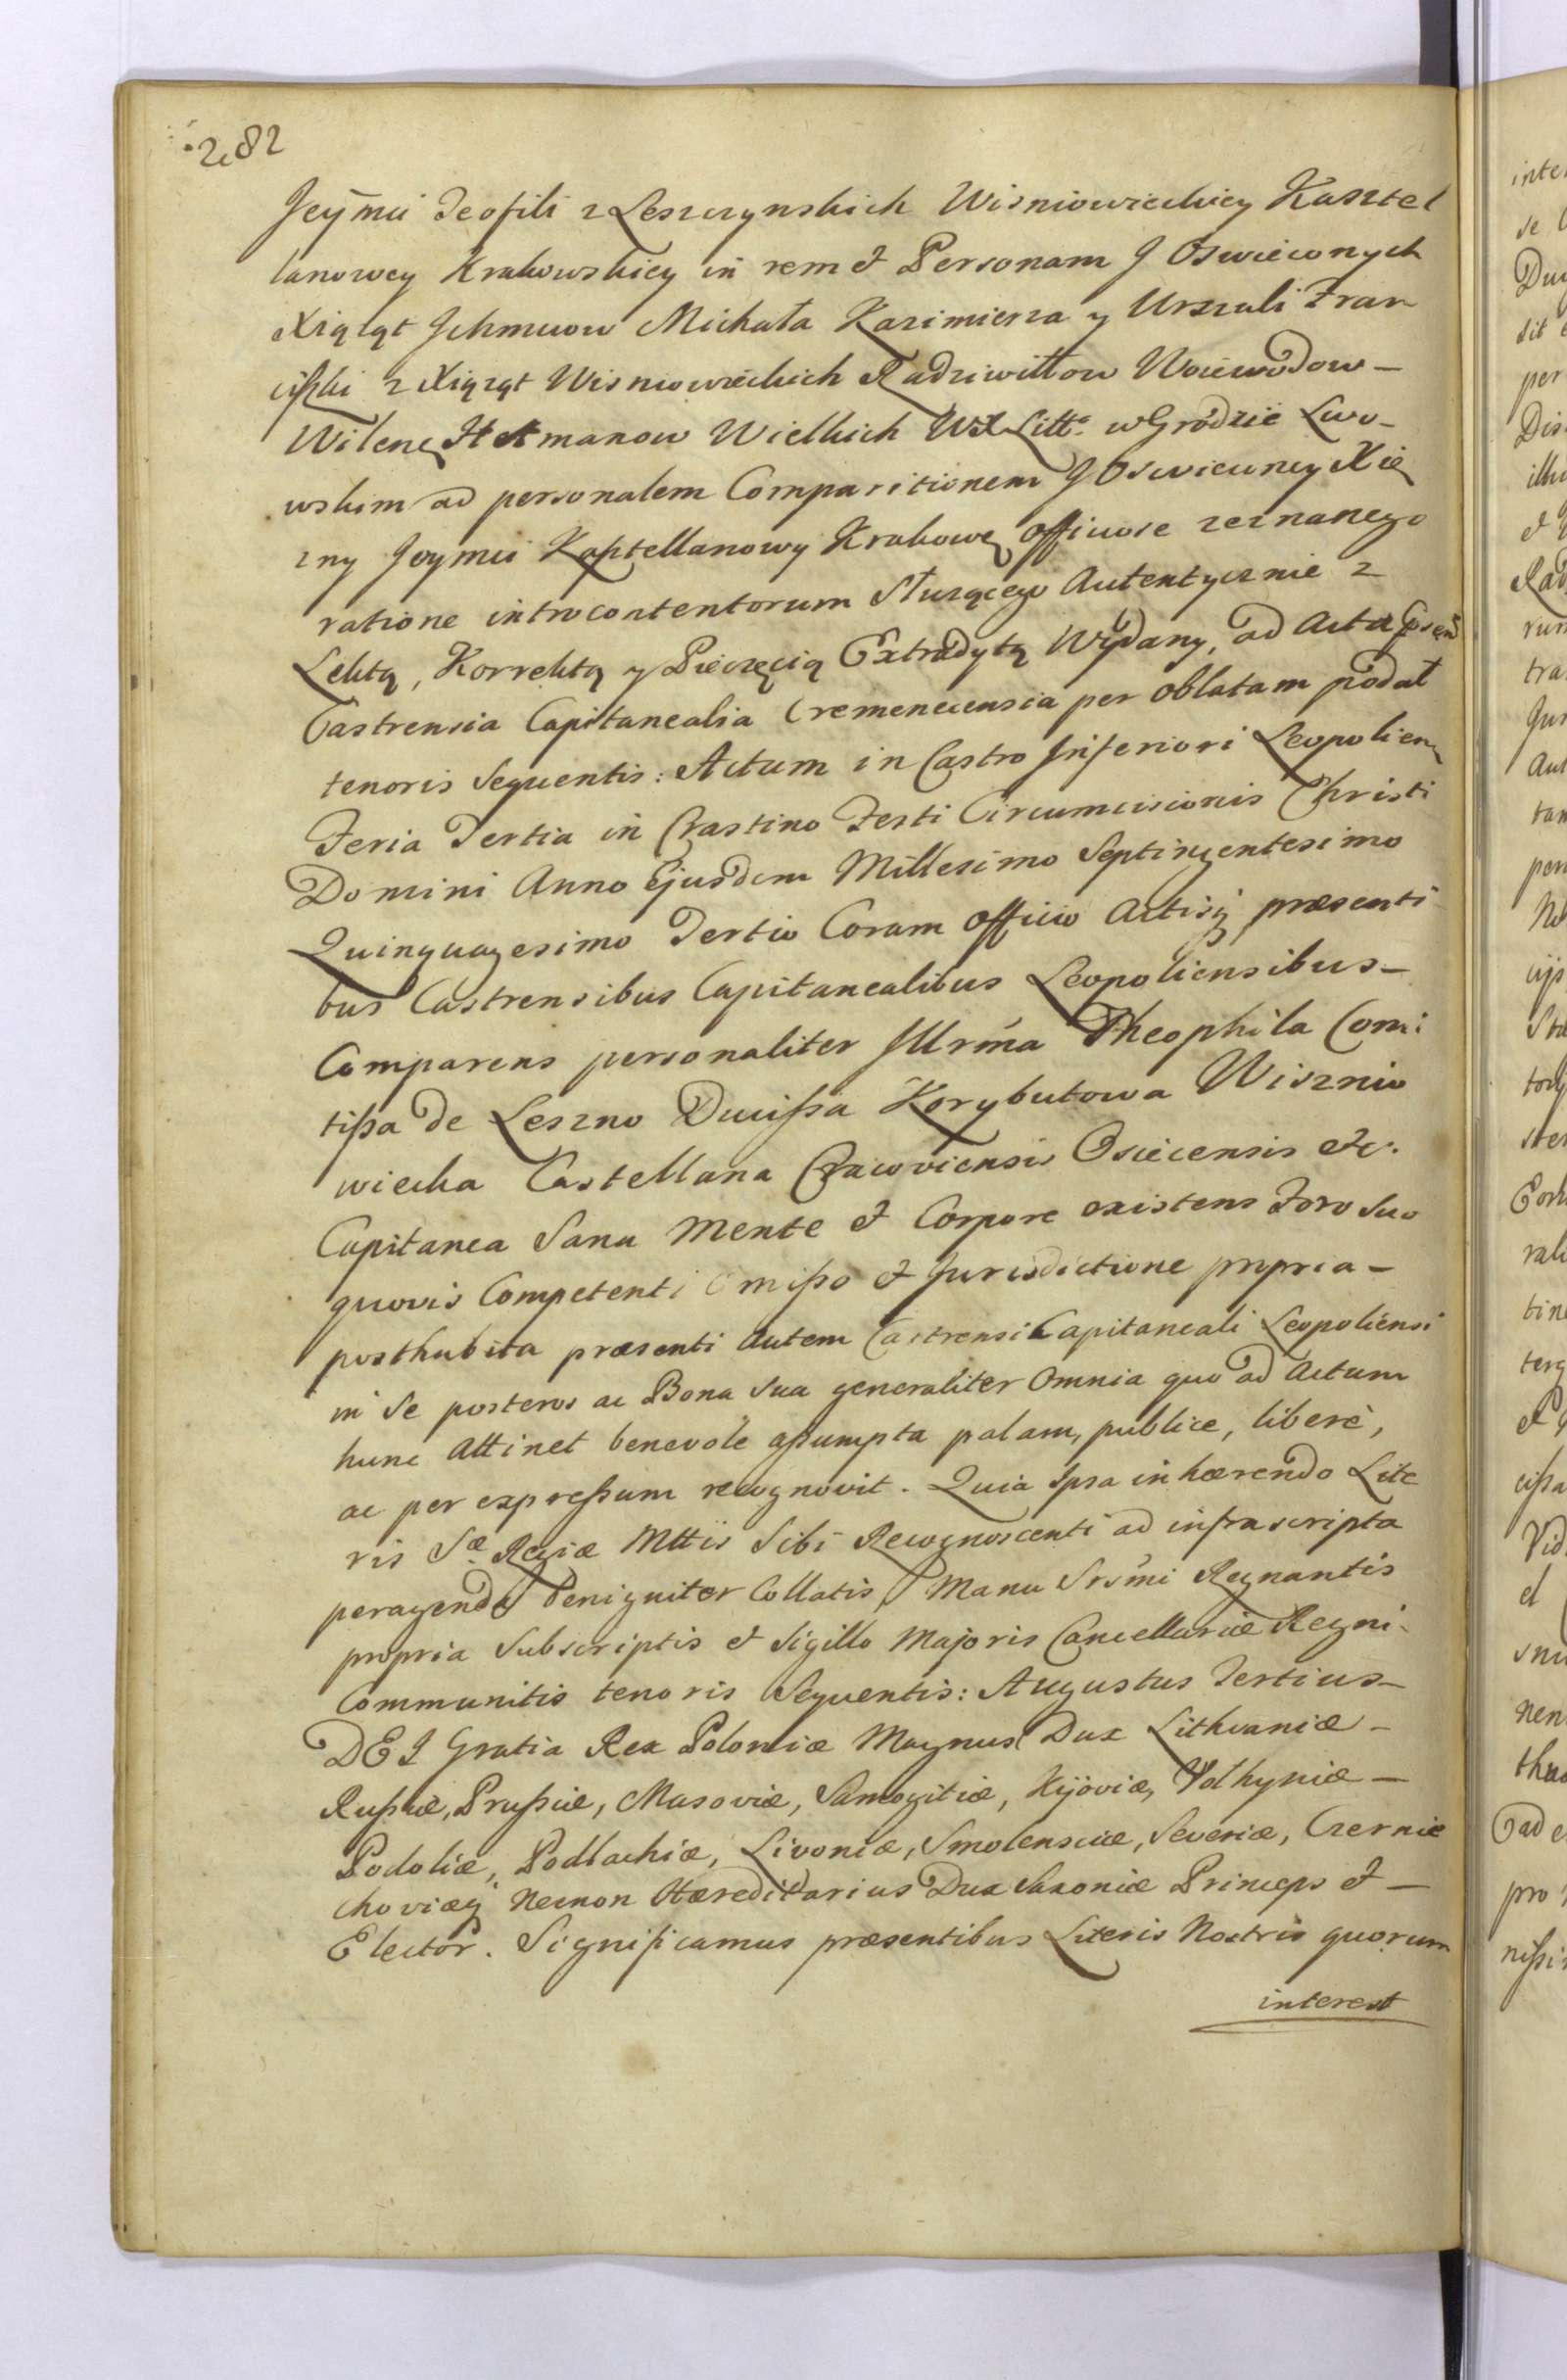 282
Jeymci Teofili z Leszczynskich Wisniowieckiey Kasztel
lanowey Krakowskiey in rem et Personam J Oswieconych
Xiąząt Jchmciow Michała Kazimierza y Urszuli Fran
ciszki z Xiąząt Wisniowieckich Radziwiłłow Woiewodow –
Wilenſ Hetmanow Wielkich WX Litte. w Grodzie Lwo–
wskim ad personalem Comparitionem J Oswieconey Xię
zny Jeymci Kasztellanowy Krakowſ officiose zeznanego
ratione introcontentorum słuzącego Autentycznie z
Lektą, Korrektą y Pieczęcią Extradytą Wydany, ad Acta psen
Castrensia Capitanealia Cremenecensia per oblatam podał
tenoris sequentis: Actum in Castro Inferiori Leopolien
Feria Tertia in Crastino Festi Circumcisionis Christi
Domini Anno Ejusdem Millesimo Septingentesimo
Quinquagesimo Tertio Coram officio Actisq praesenti
bus Castrensibus Capitanealibus Leopoliensibus –
Comparens personaliter Illrma Theophila Comi
tissa de Leszno Ducissa Korybutowa Wisznio
wiecka Castellana Cracoviensis Osiecensis etc.
Capitanea Sana mente et Corpore existens Foro suo
quovis Competenti omisso et Jurisdictione propria –
posthabita praesenti autem Castrensi Capitaneali Leopoliensi
in se posteros ac Bona sua generaliter omnia quo ad Actum
hunc attinet benevole assumpta palam, publice, liberè,
ac per expressum recognovit. Quia Ipsa inhaerendo Lite
ris Sae Regiae Mttis Sibi Recognoscenti ad infrascripta
peragenda benigniter Collatis, Manu Srsmi Regnantis
propria Subscriptis et Sigillo Majoris Cancellariae Regni
Communitis tenoris Sequentis: Augustus Tertius –
DEI Gratia Rex Poloniae Magnus Dux Lithvaniae –
Russiae, Prussiae, Masoviae, Samogitiae, Kijoviae, Volhyniae –
Podoliae, Podlachiae, Livoniae, Smolensciae, Severiae, Czernie
choviaeq Necnon Haereditarius Dux Saxoniae Princeps et –
Elector. Significamus praesentibus Literis Nostris quorum
interest